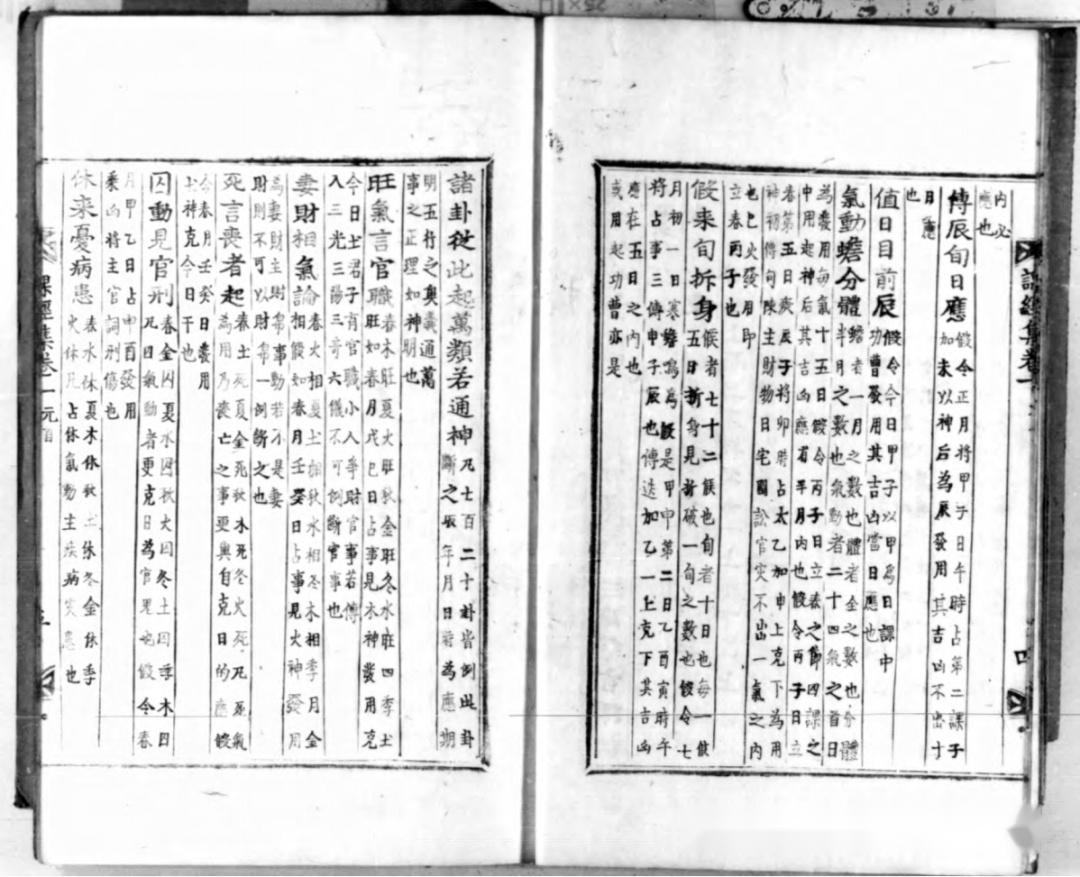 内必
應也
傳辰旬日應如未以神后為辰發用其吉凶不出十
假令正月將甲子日午時占第二課子
日應
也
值日目前辰假令今日甲子以甲為日課中
功曹發用其吉凶當日應也
氣動蟾分體蟾者一月之數也體者金之數也分體
半月之數也氣動者二十四氣之首日
為發用每氣十五日假令丙子日立春之節四課之
中用起神后其吉凶應有半月內也假令丙子日立
春第五日戊辰子將卯時占太乙加申上克下為用
神初傳旬陳主財物日宅圖訟官災不出一氣之內
也巳火發用即
立春丙子也
候来旬拆身候者七十二候也旬者十日也每一候
五日折身見折破一旬之數也假令七
月初一日寒蟾鳴為候是甲申第二日乙酉寅時午
將占事三傳申子辰也傳送加乙一上克下其吉凶
應在五日之內也
或用起功曹亦是
諸卦從此起萬類若通神凡七百二十卦皆例此卦
斷之取年月日辰為應期
明五行之奥義通萬
事之正理如神明也
旺氣言官職春木旺夏火旺秋金旺冬水旺四季土
旺如春月戊巳日占事見木神發用克
今日士君子有官職小人爭財官事若傳
入三光三陽三奇六儀不可例斷官事也
妻財相氣論春火相夏土相秋水相冬木相季月金
相假如春月壬癸日占事見火神發用
為妻財主財帛事動若不是妻
財則不可以財帛一例斷之也
死言喪者起春土死夏金死秋木死冬火死凡死氣
為用乃喪亡之事更與自克日的應假
令春月壬癸日發用
土神克今日干也
囚動見官刑春金囚夏水囚秋火囚冬土囚季木囚
凡日氣動者更克日為官鬼也假令春
月甲乙日占申酉發用
乘凶將主官詞刑傷也
休来憂病患春水休夏木休秋土休冬金休季
火休凡占休氣動主疾病災患也
課經集卷一元首